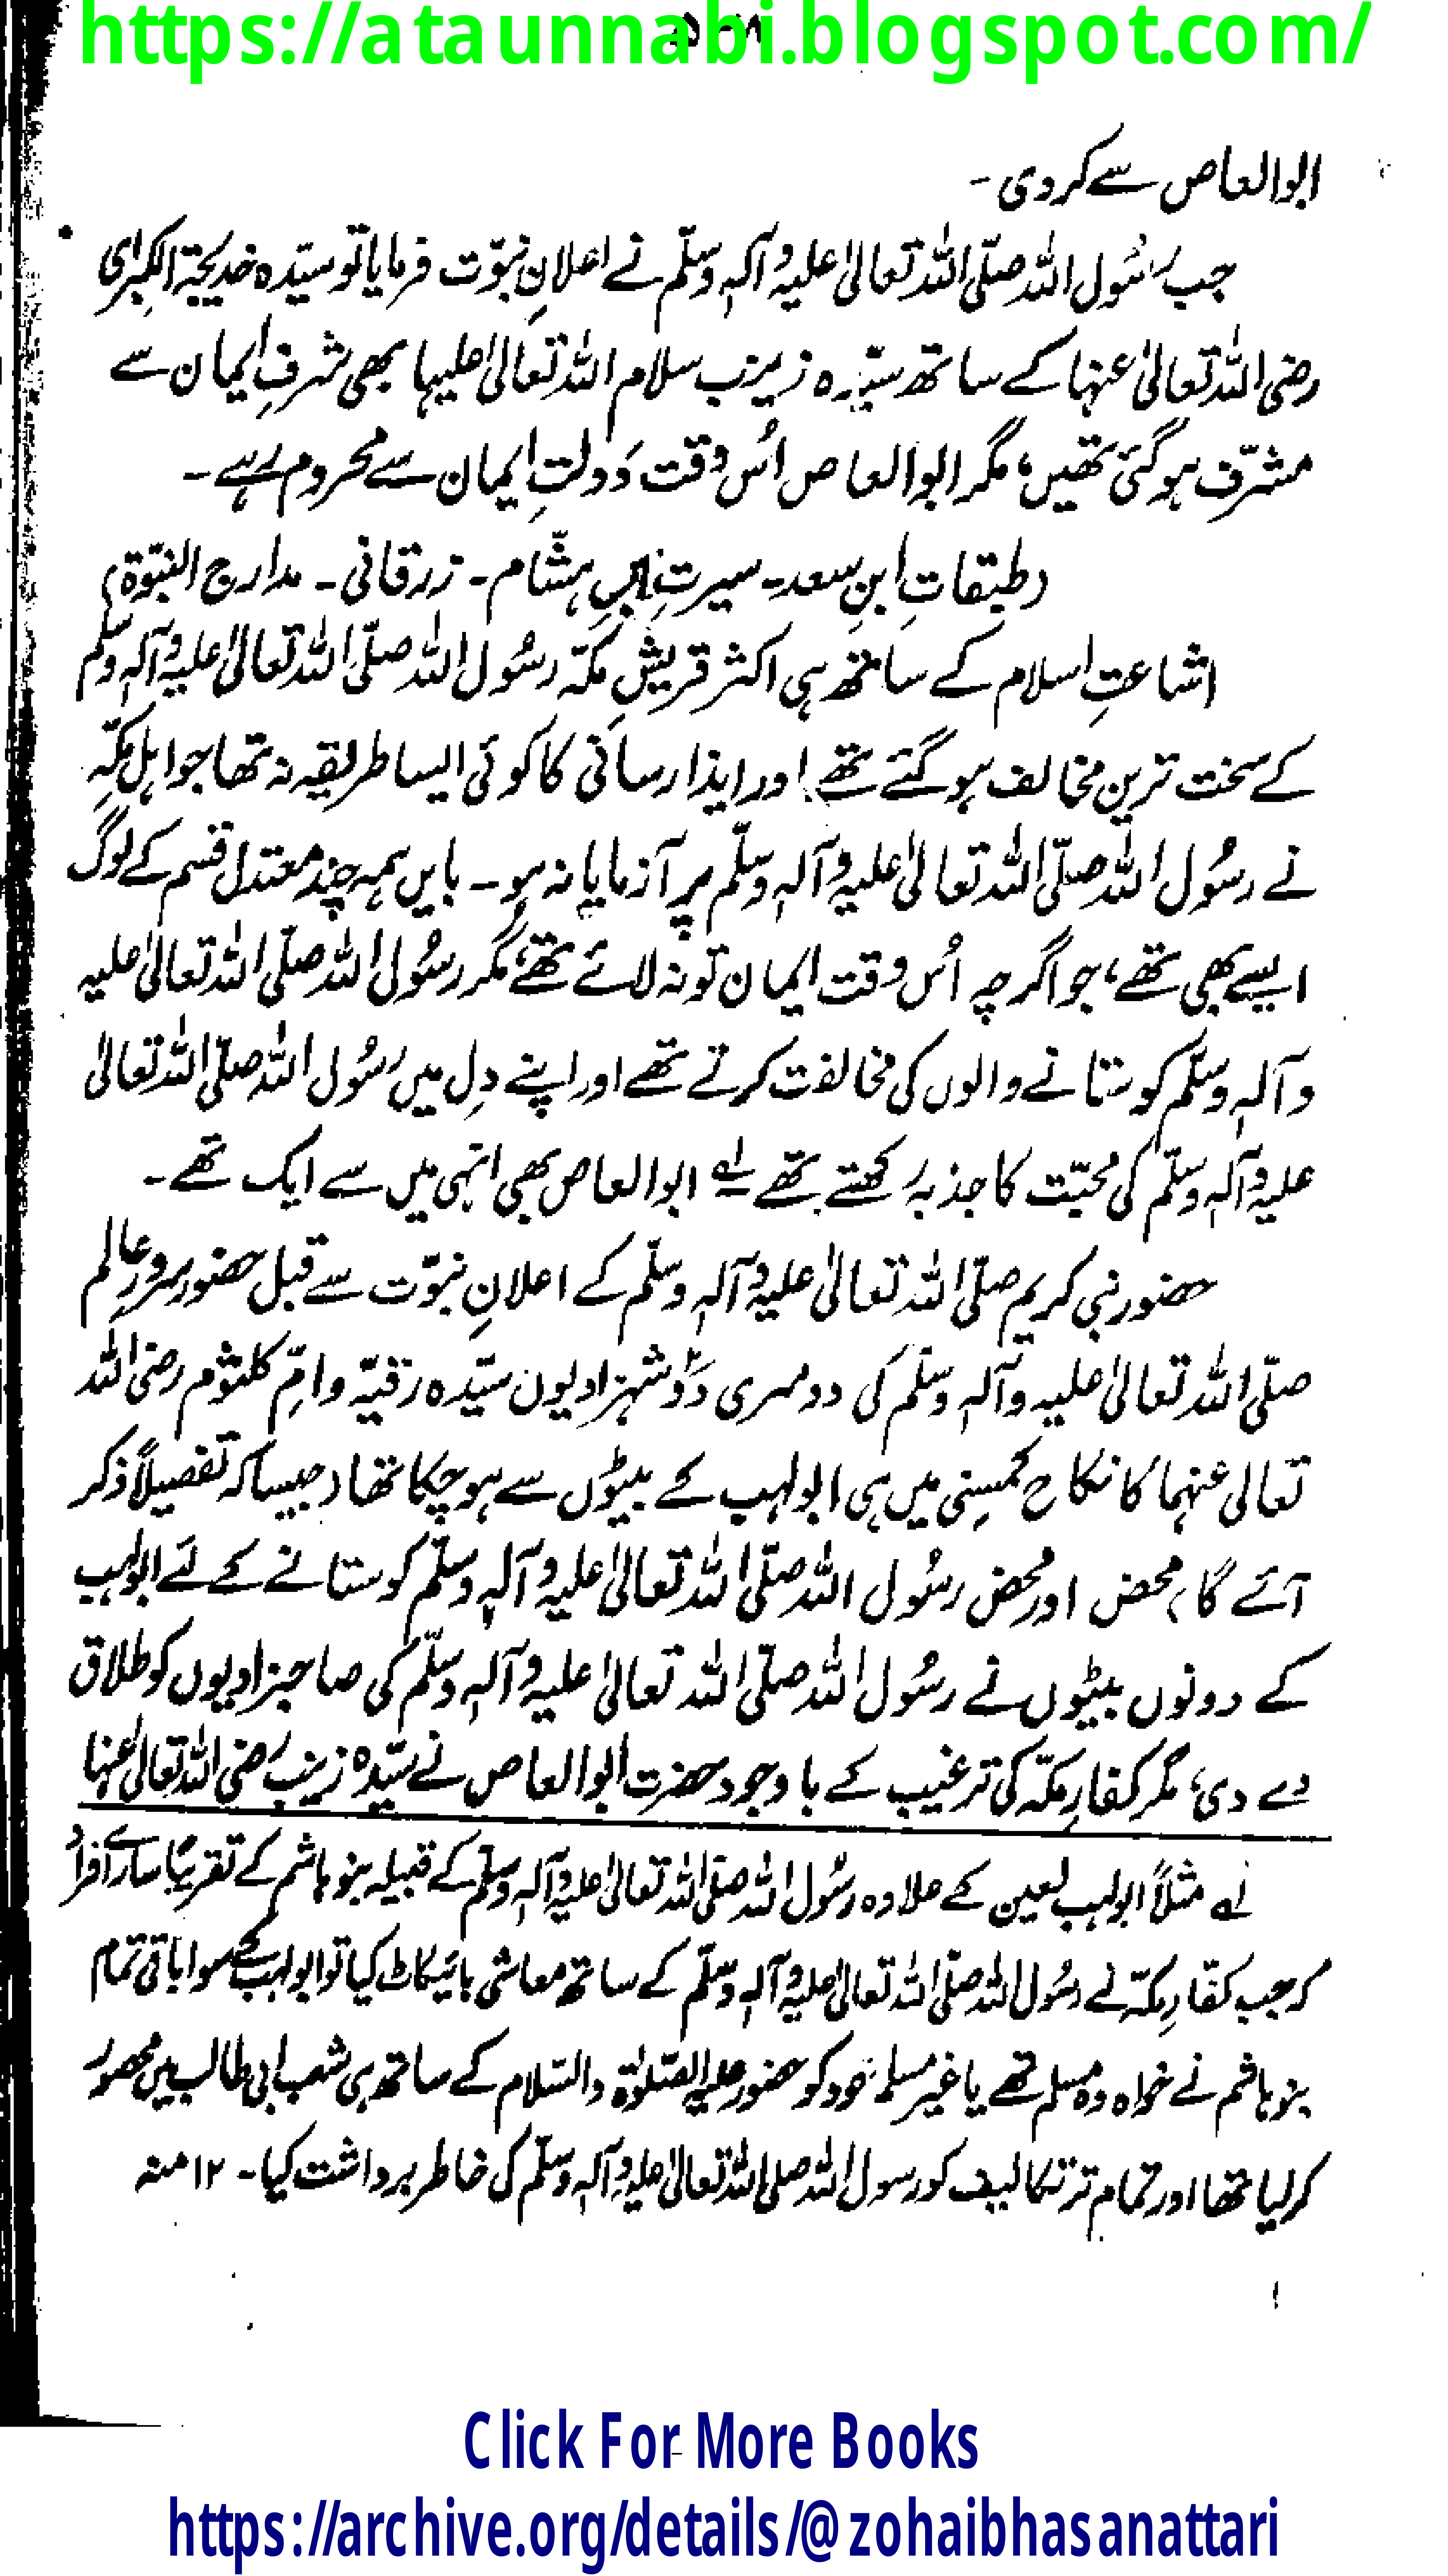 https://ataunnabi.blogspot.com/
ابوالعاص سے کر دی ۔
جب رسُول اللہ صلّی اللہ تعالیٰ علیہ وآلہٖ وسلّم نے اعلانِ نبوّت فرمایا تو سیّدہ خدیجۃ الکبرٰی
رضی اللہ تعالیٰ عنہا کے ساتھ سیّدہ زینب سلام اللہ تعالیٰ علیہا بھی شرفِ ایمان سے
مشرّف ہو گئی تھیں، مگر ابوالعاص اُس وقت دَولتِ ایمان سے محروم رہے ۔
(طبقاتِ ابنِ سعد۔ سیرتِ ابنِ ہشّام۔ زرقانی۔ مدارج النبّوۃ)
اشاعتِ اسلام کے ساتھ ہی اکثر قریشِ مکّہ رسُول اللہ صلّی اللہ تعالیٰ علیہ وآلہٖ وسلّم
کے سخت ترین مخالف ہو گئے تھے اور ایذا رسانی کا کوئی ایسا طریقہ نہ تھا جو اہلِ مکّہ
نے رسُول اللہ صلّی اللہ تعالیٰ علیہ وآلہٖ وسلّم پر آزمایا نہ ہو ۔ بایں ہمہ چند معتدل قسم کے لوگ
ایسے بھی تھے، جو اگرچہ اُس وقت ایمان تو نہ لائے تھے، مگر رسُول اللہ صلّی اللہ تعالیٰ علیہ
وآلہٖ وسلّم کو ستانے والوں کی مخالفت کرتے تھے اور اپنے دِل میں رسُول اللہ صلّی اللہ تعالیٰ
علیہ وآلہٖ وسلّم کی محبّت کا جذبہ رکھتے تھے لے ابوالعاص بھی انہی میں سے ایک تھے ۔
حضور نبی کریم صلّی اللہ تعالیٰ علیہ وآلہٖ وسلّم کے اعلانِ نبوّت سے قبل حضور سرورِ عالم
صلّی اللہ تعالیٰ علیہ وآلہٖ وسلّم کی دوسری دَو شہزادیوں سیّدہ رقیّہ و امِّ کلثوم رضی اللہ
تعالیٰ عنہما کا نکاح کمسِنی میں ہی ابولہب کے بیٹوں سے ہو چکا تھا (جیسا کہ تفصیلاً ذکر
آئے گا) محض اور محض رسُول اللہ صلّی اللہ تعالیٰ علیہ وآلہٖ وسلّم کو ستانے کے لئے ابولہب
کے دونوں بیٹوں نے رسُول اللہ صلّی اللہ تعالیٰ علیہ وآلہٖ وسلّم کی صاحبزادیوں کو طلاق
دے دی، مگر کفارِ مکّہ کی ترغیب کے باوجود حضرت ابوالعاص نے سیّدہ زینب رضی اللہ تعالیٰ عنہا
لے مثلاً ابولہب لعین کے علاوہ رسُول اللہ صلّی اللہ تعالیٰ علیہ وآلہٖ وسلّم کے قبیلہ بنو ہاشم کے تقریباً سارے افراد
کہ جب کفّارِ مکّہ نے رسُول اللہ صلّی اللہ تعالیٰ علیہ وآلہٖ وسلّم کے ساتھ معاشی بائیکاٹ کیا تو ابولہب کے سوا باقی تمام
بنو ہاشم نے خواہ وہ مسلم تھے یا غیر مسلم خود کو حضور علیہ الصّلوٰۃ والسّلام کے ساتھ ہی شعب ابی طالب میں محصور
کر لیا تھا اور تمام تر تکالیف کو رسول اللہ صلی اللہ تعالیٰ علیہ وآلہٖ وسلّم کی خاطر برداشت کیا ۔ ۱۲ منہ
Click For More Books
https://archive.org/details/@zohaibhasanattari